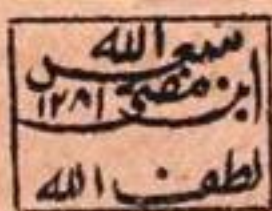 سعد الله
ابن مفتى
١٢٨١
لطف الله